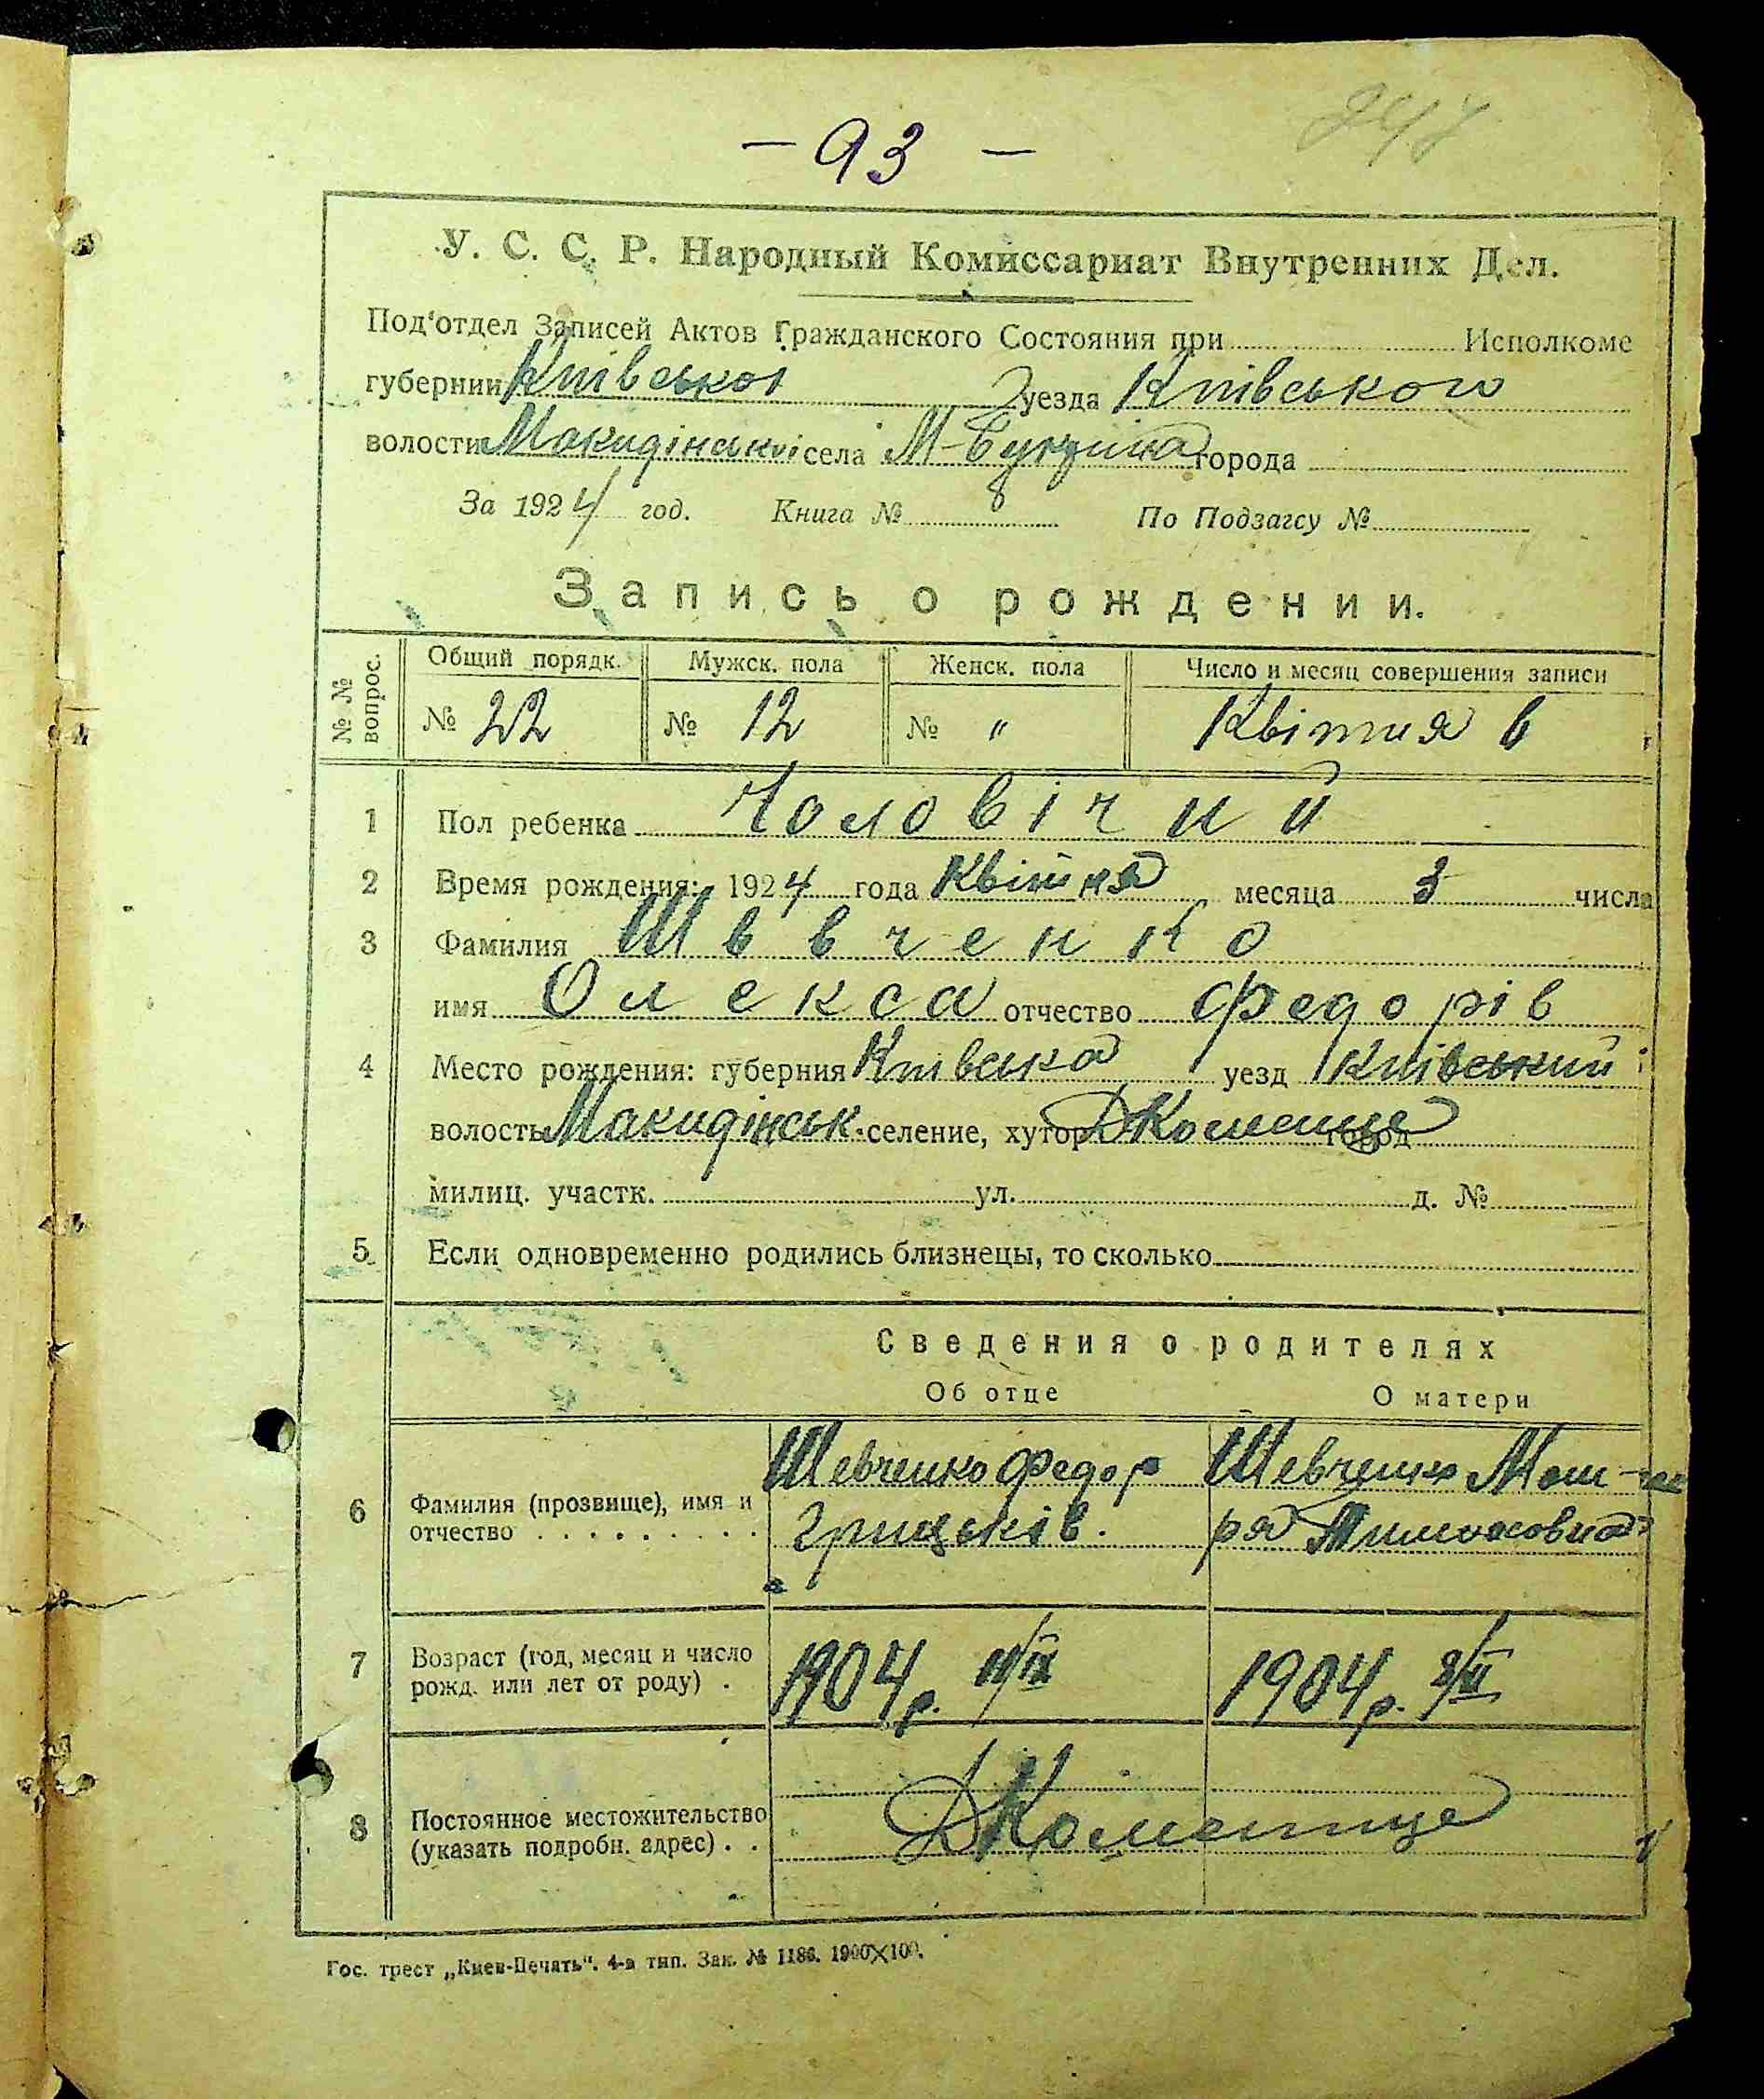 — 93 —
247
У. С. С. Р. Народный Комиссариат Внутренних Дел.
Под'отдел Записей Актов Гражданского Состояния при Исполкоме
губернии Київської уезда Київського
волости села города
За 1924 год. Книга № 8 По Подзагсу №
Запись о рождении.
№ № вопрос. Общий порядк. Мужск. пола Женск. пола Число и месяц совершения записи
№ 22 № 12 № " Квітня 6
1 Пол ребенка Чоловічий
2 Время рождения: 1924 года Квітня месяца 3 числа
3 Фамилия Шевченко
имя Олекса отчество Федорів
4 Место рождения: губерния Київська уезд Київський
волость селение, хутор город
милиц. участк. ул. д. №
5 Если одновременно родились близнецы, то сколько
Сведения о родителях
Об отце О матери
6 Фамилия (прозвище), имя и отчество . . . . . . . . . .
Шевченко Федор Шевченко
Грицьків.
7 Возраст (год, месяц и число рожд. или лет от роду) .
1904 р. 1904 р.
8 Постоянное местожительство (указать подробн. адрес) . .
Гос. трест „Киев-Печать". 4-я тип. Зак. № 1186. 1900×100.